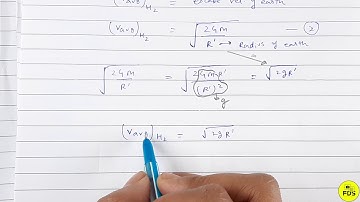 (Vavg)H2 = escape vel of earth
(Vavg)H2 = √(2GM/R') → Radius of earth — ②
√(2GM/R') = √(2GMR'/(R')²) = √2gR'
g
(Vavg)H2 = √2gR'
FDS